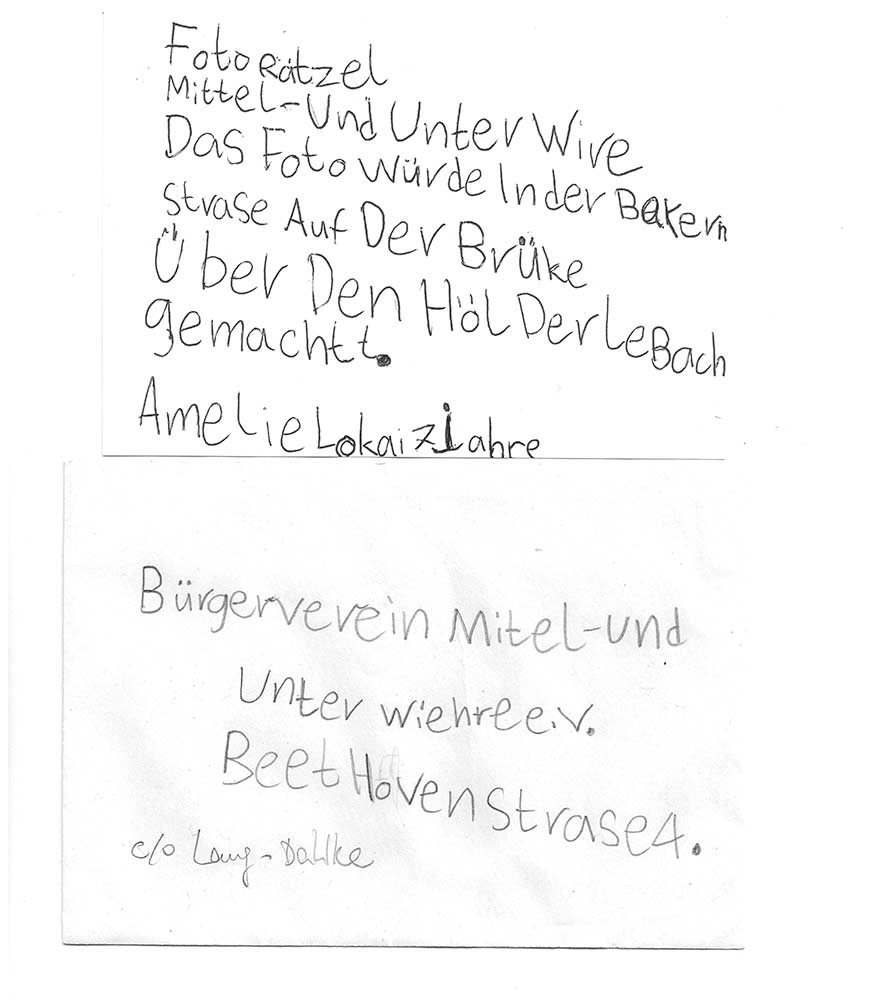 Foto Rätzel
Mittel-Und Unter Wire
Das Foto Würde In der Bakern
strase Auf Der Brüke
Über Den Höl Derle Bach
gemachtt.
Amelie Lokai 7 Jahre
Bürgerverein Mitel-und
Unter wiehre e.V.
BeetHovenstrase 4.
c/o Lang-Dahlke